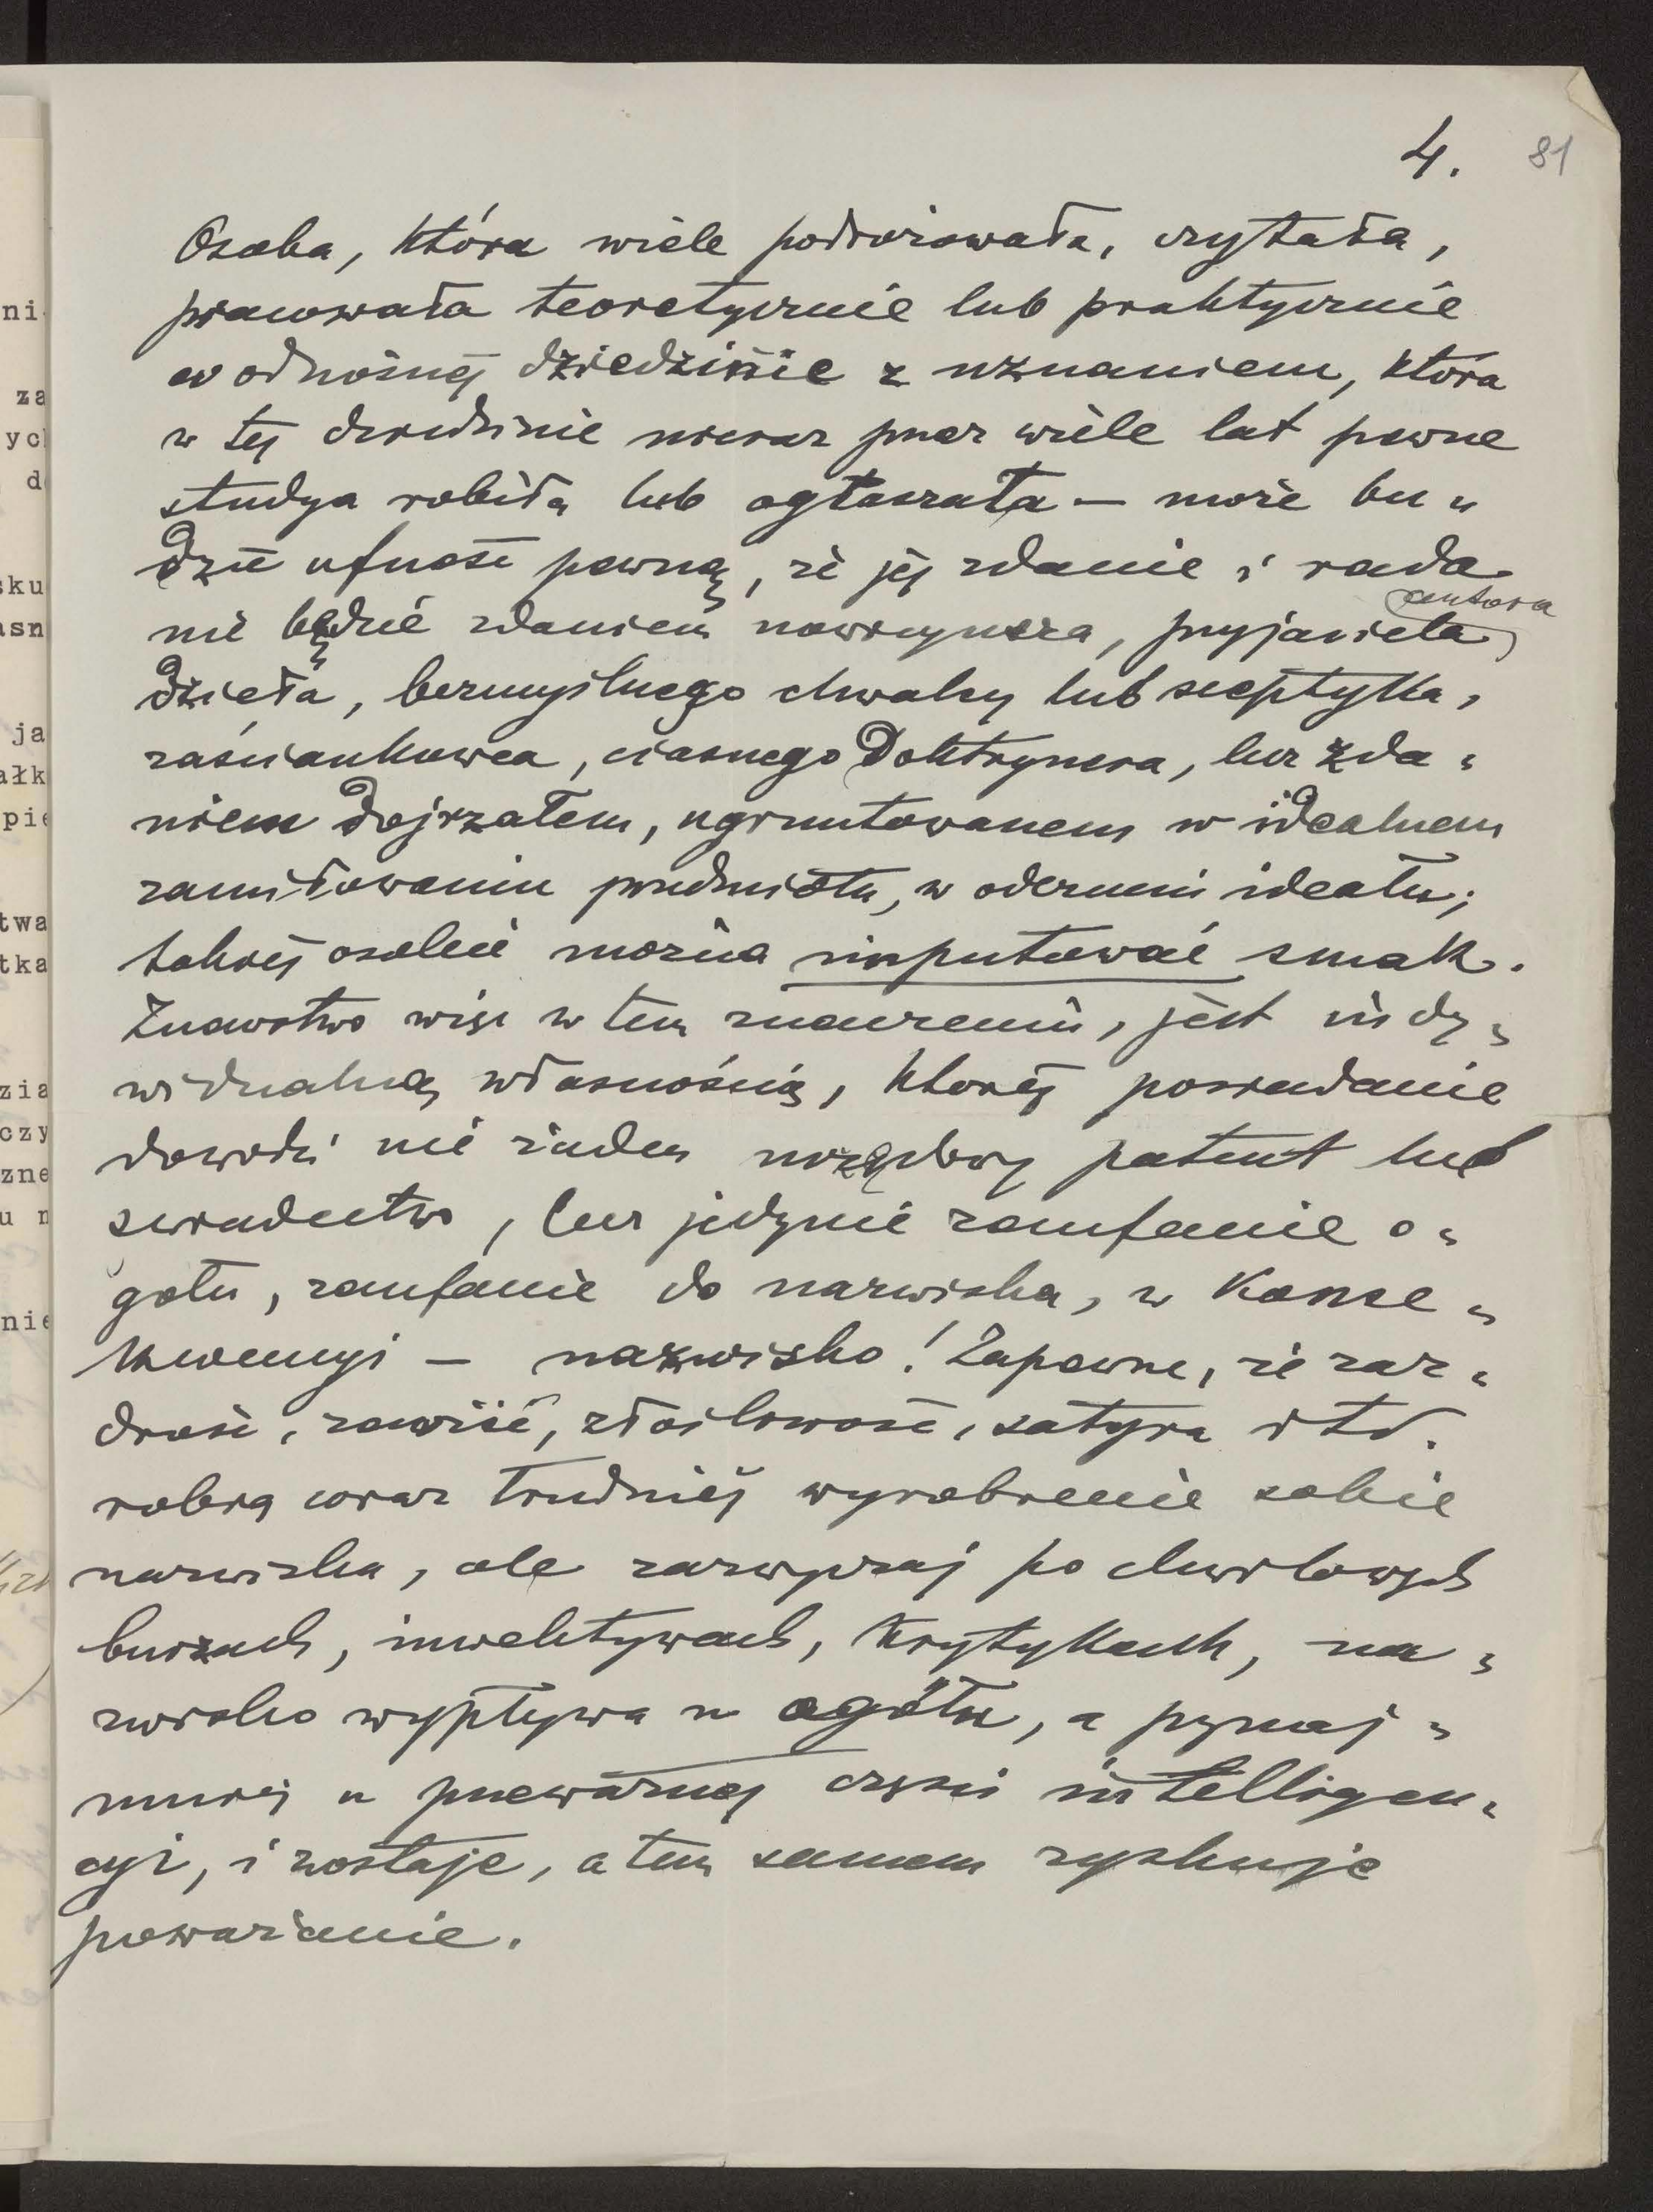 4. 81
Osoba, która wiele podróżowała, czytała,
pracowała teoretycznie lub praktycznie
w odnośnej dziedzinie z uznaniem, która
w tej dziedzinie nieraz przez wiele lat pewne
studya robiła lub ogłaszała — może bu„
dzić ufność pewną, że jej zdanie i rada
nie będzie zdaniem nowicyusza, przyjaciela autora
dzieła, bezmyślnego chwalcy lub sceptyka,
zaściankowca, ciasnego Doktrynera, lecz zda„
niem dojrzałem, ugruntowanem w idealnem
zamiłowaniu przedmiotu, w odczuciu ideału;
takiej osobie można imputować smak.
Znawstwo więc w tem znaczeniu, jest indy„
widualną własnością, której posiadanie
dowodzi nie żaden urzędowy patent lub
świadectwo, lecz jedynie zaufanie o„
gółu, zaufanie do nazwiska, w konse„
kwencyi — nazwisko! Zapewne, że zaz„
drość, zawiść, złośliwość, satyra itd.
robią coraz trudniej wyrobienie sobie
nazwiska, ale zazwyczaj po chwilowych
burzach, inwektywach, krytykach, na„
zwisko wypływa u ogółu, a przynaj„
mniej u przeważnej części intelligen„
cyi, i zostaje, a tem samem zyskuje
poważanie.
ni
za
ych
d
sku
asn
ja
ałk
pie
twa
tka
zia
czy
zne
u n
nie